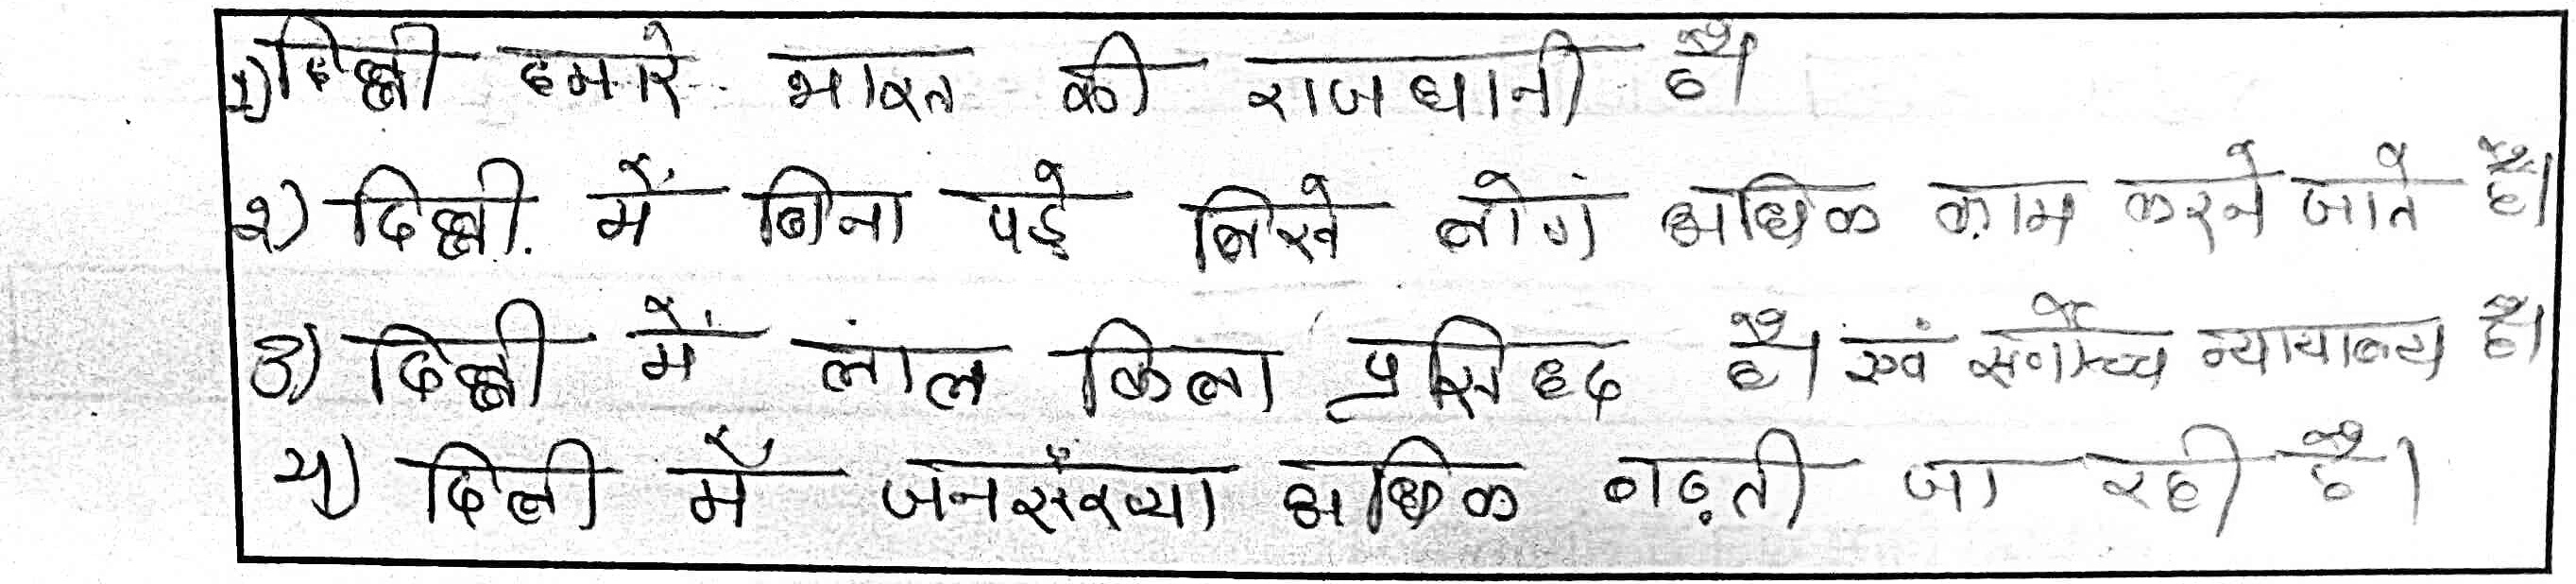 1) दिल्ली हमारे भारत की राजधानी है।
२) दिल्ली. में बिना पड़े लिखे लोगं अधिक काम करने जाते है।
3) दिल्ली में लाल किला प्रसिध्द है। एवं सर्वोच्च न्यायालय है।
4) दिल्ली में जनसंख्या अधिक बढ़ती जा रही है।